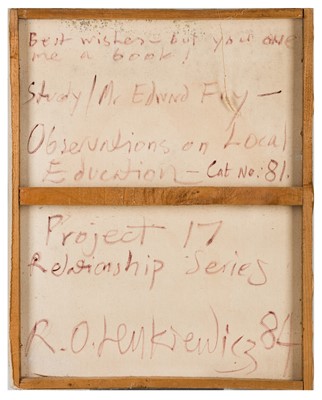 Best wishes – but you owe
me a book!
Study/Mr Edward Fry –
Observations on Local
Education – Cat No: 81.
Project 17
Relationship Series
R.O. Lenkiewicz 84